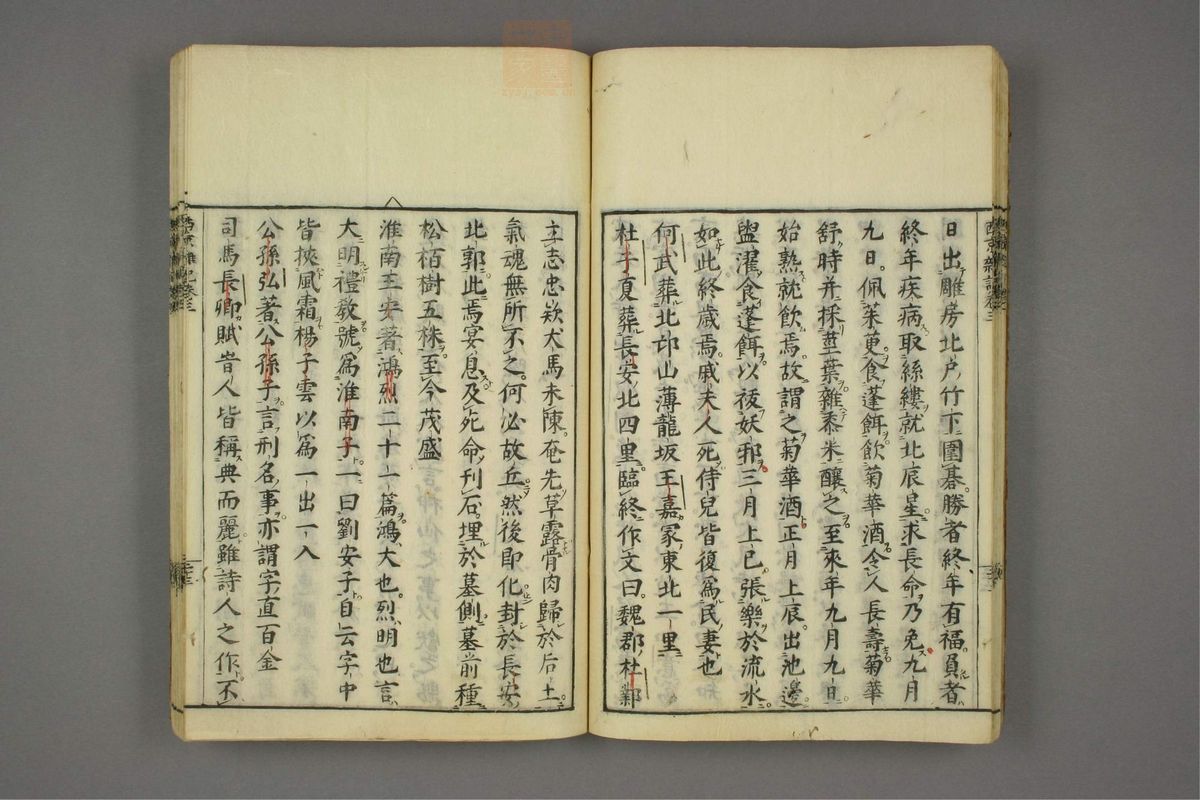 日出雕房北戸竹下圍碁勝者終年有福負者
終年疾病取絲縷就北辰星求長命乃免九月
九日佩茱萸食蓬餌飲菊華酒令人長壽菊華
舒時并採莖葉雜黍米釀之至來年九月九日
始熟就飲焉故謂之菊華酒正月上辰出池邊
盥濯食蓬餌以祓妖邪三月上巳張樂於流水
如此終歳焉戚夫人死侍兒皆復爲民妻也
何武葬北邙山薄龍坂王嘉冢東北一里
杜子夏葬長安北四里臨終作文曰魏郡杜鄴
立志忠欵犬馬未陳奄先草露骨肉歸於后土
氣魂無所不之何必故丘然後即化封於長安
北郭此焉宴息及死命刊石埋於墓側墓前種
松栢樹五株至今茂盛
淮南王安著鴻烈二十一篇鴻大也烈明也言
大明禮敎號爲淮南子一曰劉安子自云字中
皆挾風霜楊子雲以爲一出一入
公孫弘著公孫子言刑名事亦謂字直百金
司馬長卿賦旹人皆稱典而麗雖詩人之作不
西京雜記卷三